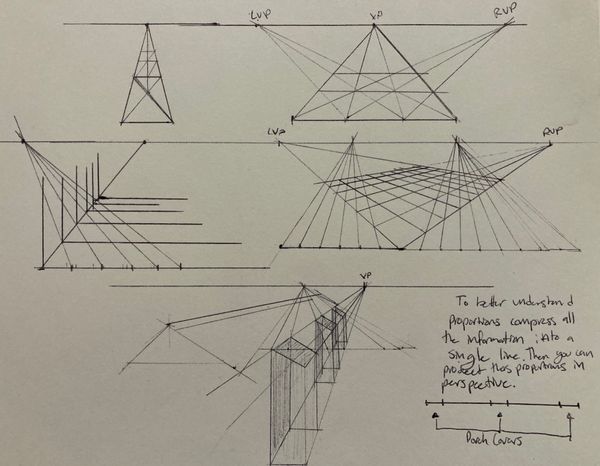 LVP
VP
RVP
LVP
RVP
VP
To better understand
proportions compress all
the information into a
single line. Then you can
project thos proportions in
perspective.
Porch Covers